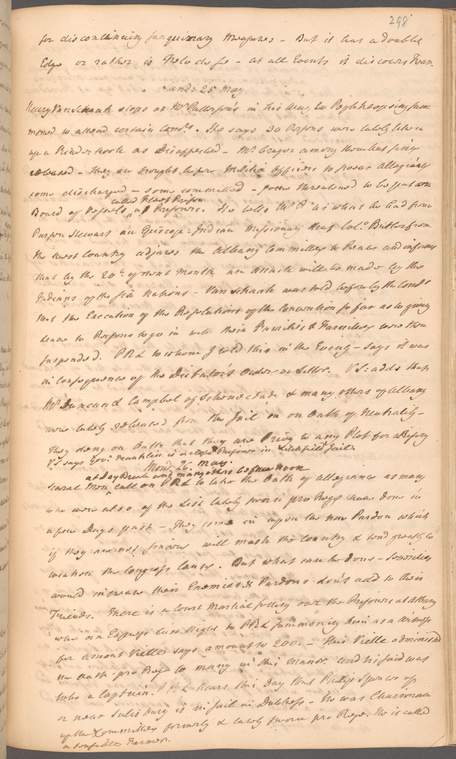 298
for discontinuing sanguinary Measures - But it has a double
Edge or rather is Felo de se - at all Events it discovers Fear.
Sund: 25 May
Henry Van Schaack stops at Mr Pattersons in his Way to Poghkeepsing
moned to attend certain He says 20 Persons were lately taken
up a Kinderhook as Disaffected - Mr among them but since
released - They are brought before Militia Officers to swear Allegiance
some discharged - some committed - some threatened to be put on
Board of Vessels called Fleet Prison as Prisoners. He tells Mr P as what he had from
Parson Stewart an Episcopal Indian Missionary that Col. Butler from
the West Country advises the Albany Committee to and informs
that by the 20th of next Month an Attack will be made by the
Indians of the six Nations - Van Schaack was told before by the
that the Execution of the Resolutions of the Convention so far as to giving
leave to Persons to go in with their Families & Furniture was
suspended. PRL to whom I told this in the Evening - says it was
in consequence of the Dictators Order or Letter. VS: adds that
Mr Duncan & Campbel of Schonectade & many others of Albany
were lately released from the Jail on an Oath of Neutrality -
They deny on Oath that they are Privy to any Plot for a Rising
VS says Govr Franklin is a close Prisoner in Litchfield Jail
Mond: 26 May.
at Day Break and many others before Noon
Several Men call on PRL to take the Oath of allegiance as many
who were also of the List lately sworn pro Rege have done in
a few Days past - They come in upon the new Pardon which
if they are not serious will mask the Country & tend greatly to
weaken the Congress Cause. But what can be done - Severities
would increase their Enemies & Pardons dont add to their
Friends. There is a Court Martial sitting over the Prisoners at Albany
was an Express last Night to PRL summoning him as a Witness
for amount says amount to 200 - This admitted
an Oath pro Rege to many in this Manor, and his said was
to be a Captain. PRL hears this Day that Philip Spencer of
or near Salisbury is in Jail in Dutchess - He was Chairman
of the Committee formerly & lately sworn pro Rege. He is called
a Farmer.